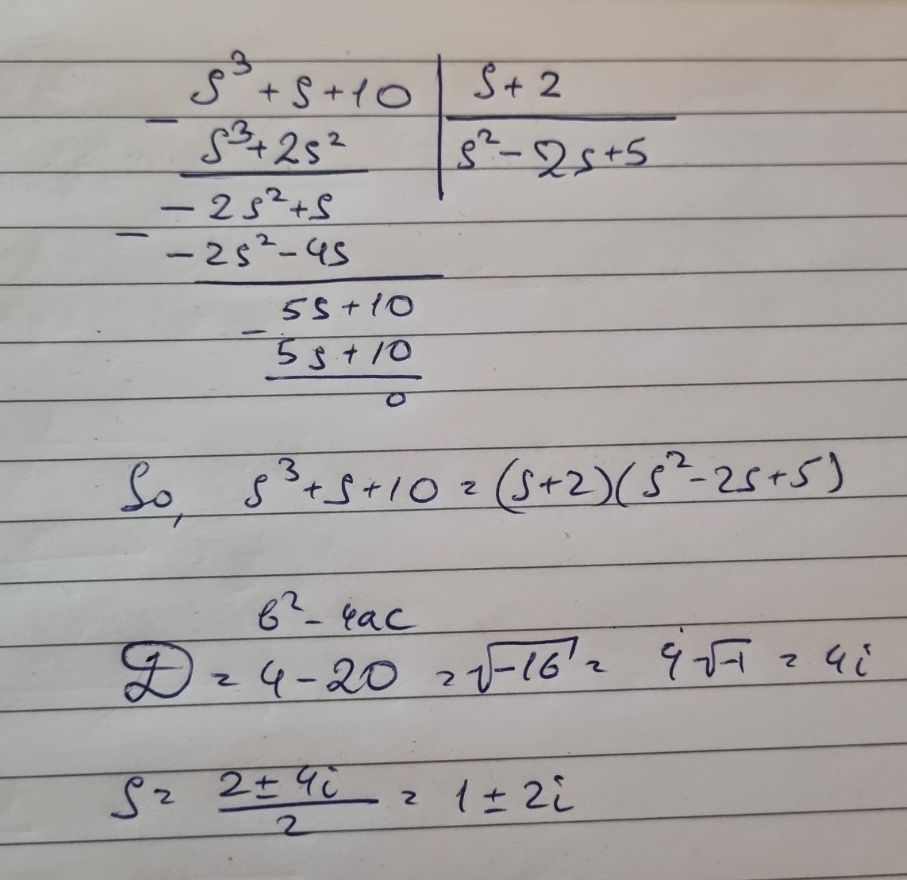 s³ + s + 10 | s + 2
- s³ + 2s² | s² - 2s + 5
- 2s² + s
- - 2s² - 4s
5s + 10
- 5s + 10
0
So, s³ + s + 10 = (s+2)(s² - 2s + 5)
b² - 4ac
D = 4 - 20 = √-16 = 4√-1 = 4i
s = (2 ± 4i)/2 = 1 ± 2i